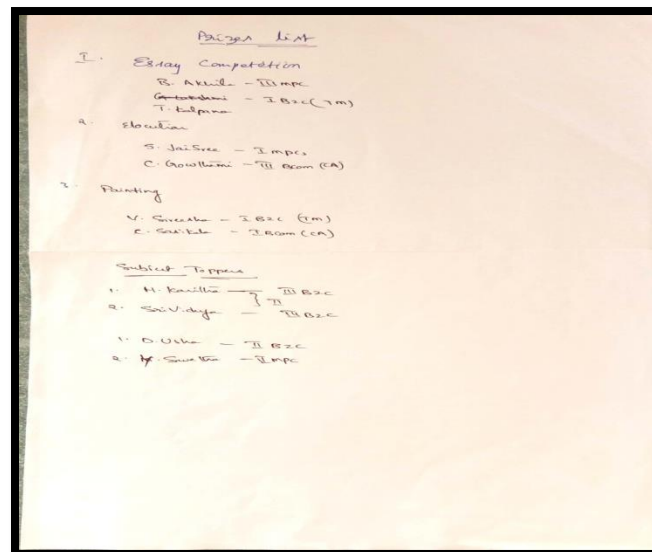 Prizes list
I. Essay Competetion
B. Akhila - III mpc
G. Lakshmi - I BZC (TM)
T. Kalpana
2. Elocution
S. JaiSree - I mpcs
C. Gowthami - III Bcom (CA)
3. Painting
V. Sireesha - I BZC (TM)
E. - I Bcom (CA)
Subject Toppers
1. M. Kavitha - III BZC
} II
2. Sri Vidya - III BZC
1. D. Usha - II BZC
2. Swetha - II mpc